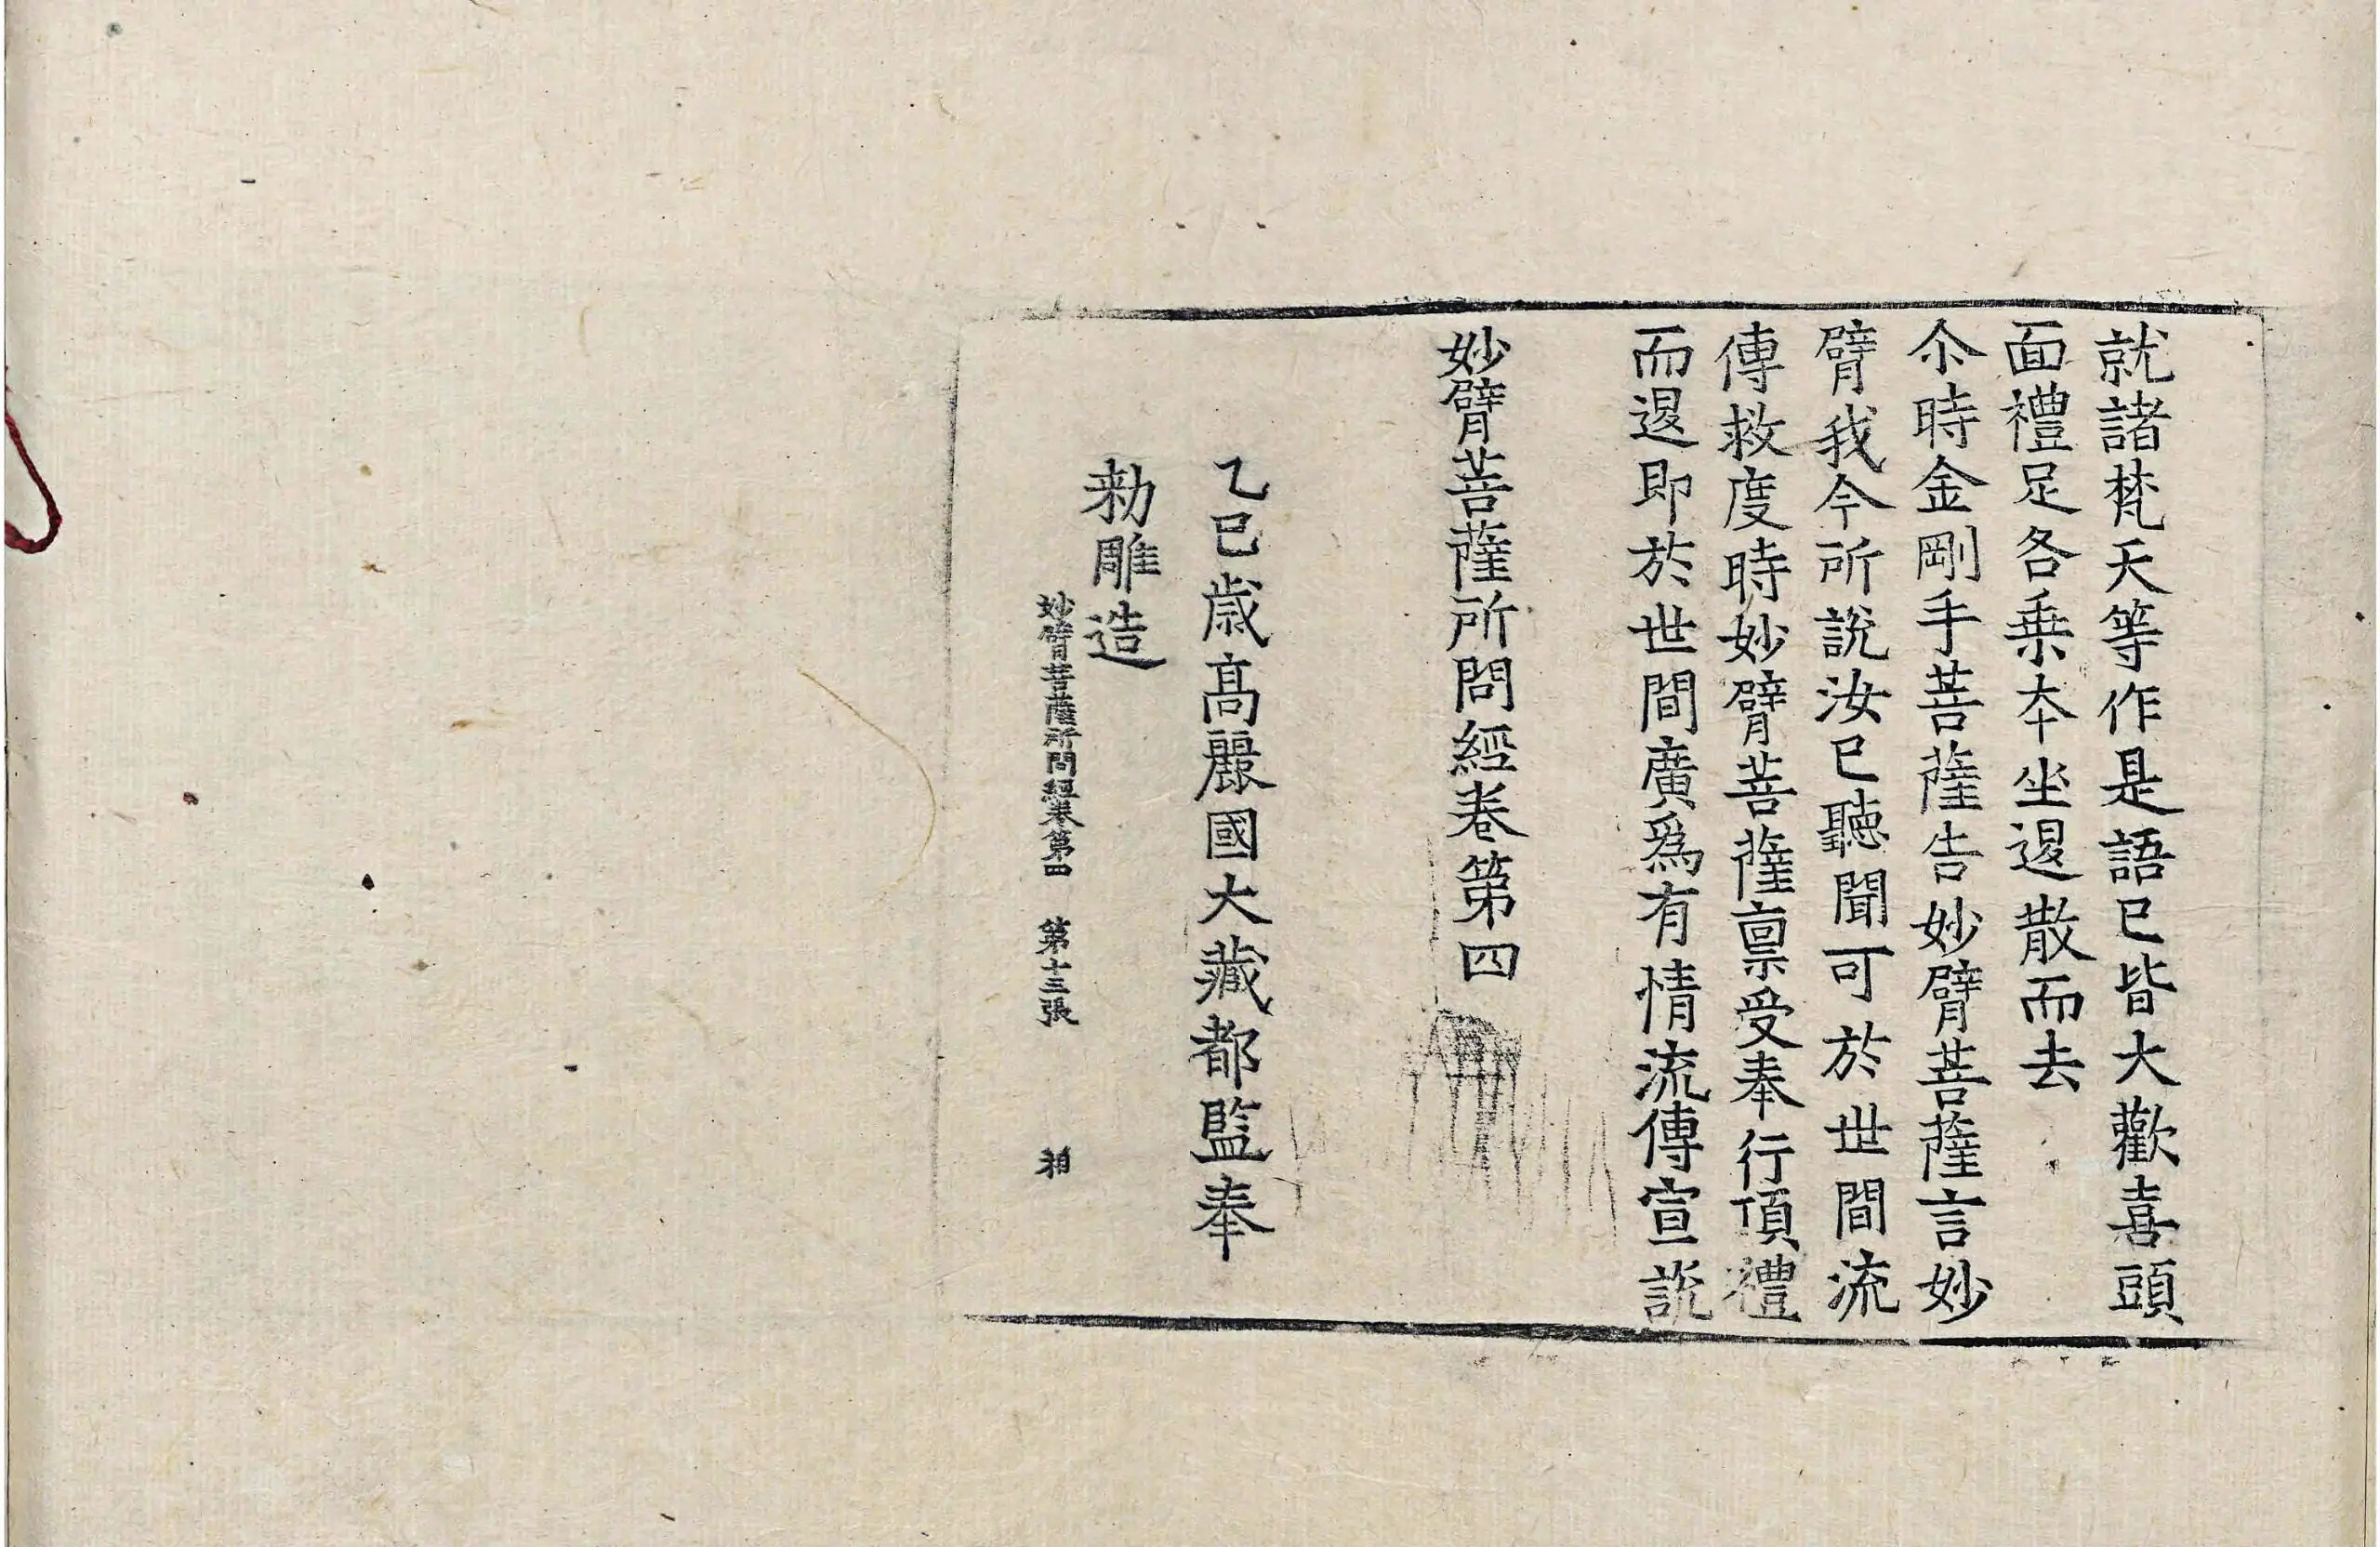 就諸梵天等作是語已皆大歡喜頭
面禮足各乗夲坐退散而去
尒時金剛手菩薩告妙臂菩薩言妙
臂我今所說汝已聽聞可於世間流
傳救度時妙臂菩薩禀受奉行頂禮
而退即於世間廣爲有情流傳宣說
妙臂菩薩所問經卷第四
乙巳歳髙麗國大藏都監奉
勑雕造
妙臂菩薩所問經卷第四 第十三張